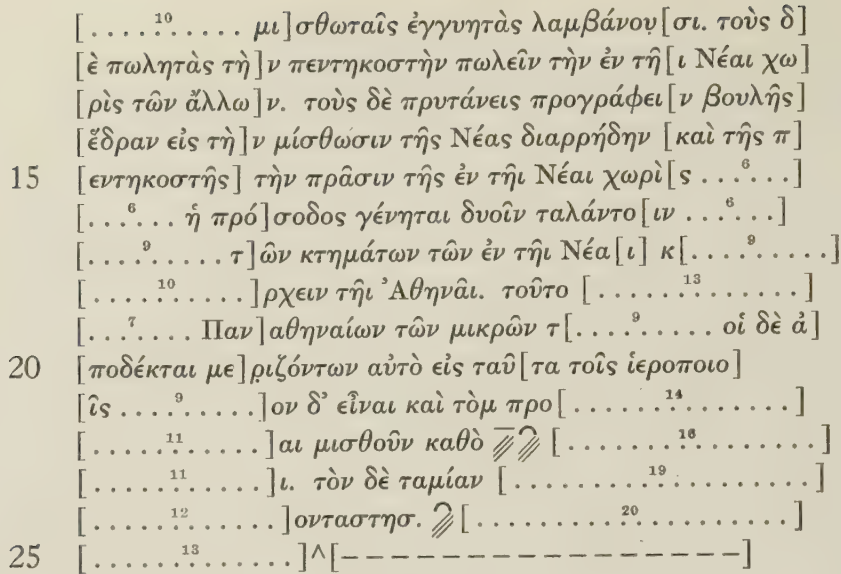 [. . . . .¹⁰. . . . . μι]σθωταῖς ἐγγυητὰς λαμβάνου̣[σι. τοὺς δ]
[ὲ πωλητὰς τὴ]ν πεντηκοστὴν πωλεῖν τὴν ἐν τῆ[ι Νέαι χω]
[ρὶς τῶν ἄλλω]ν. τοὺς δὲ πρυτάνεις προγράφει[ν βουλῆς]
[ἕδραν εἰς τὴ]ν μίσθωσιν τῆς Νέας διαρρήδην [καὶ τῆς π]
15 [εντηκοστῆς] τὴν πρᾶσιν τῆς ἐν τῆι Νέαι χωρὶ[ς . . .⁶. . .]
[. . .⁶. . . ἡ πρό]σοδος γένηται δυοῖν ταλάντο[ιν . . .⁶. . .]
[. . . .⁹. . . . . τ]ῶν κτημάτων τῶν ἐν τῆι Νέα[ι] κ[. . . .⁹. . . . .]
[. . . . .¹⁰. . . . .]ρχειν τῆι Ἀθηνᾶι. τοῦτο [. . . . . .¹³. . . . . . .]
[. . .⁷. . . . Παν]αθηναίων τῶν μικρῶν τ[. . . .⁹. . . . . οἱ δὲ ἀ]
20 [ποδέκται με]ρ̣ιζόντων αὐτὸ εἰς ταῦ[τα τοῖς ἱεροποιο]
[ῖς . . . .⁹. . . . .]ον δ' εἶναι καὶ τὸμ προ[. . . . . .¹⁴. . . . . . . .]
[. . . . .¹¹. . . . . .]αι μισθοῦν καθὸ [. . . . . . . .¹⁶. . . . . . . .]
[. . . . .¹¹. . . . . .]ι. τὸν δὲ ταμίαν [. . . . . . . . .¹⁹. . . . . . . . . .]
[. . . . . .¹². . . . . .]ονταστησ. [. . . . . . . . . .²⁰. . . . . . . . . .]
25 [. . . . . .¹³. . . . . . .]^[– – – – – – – – – – – – – – – –]